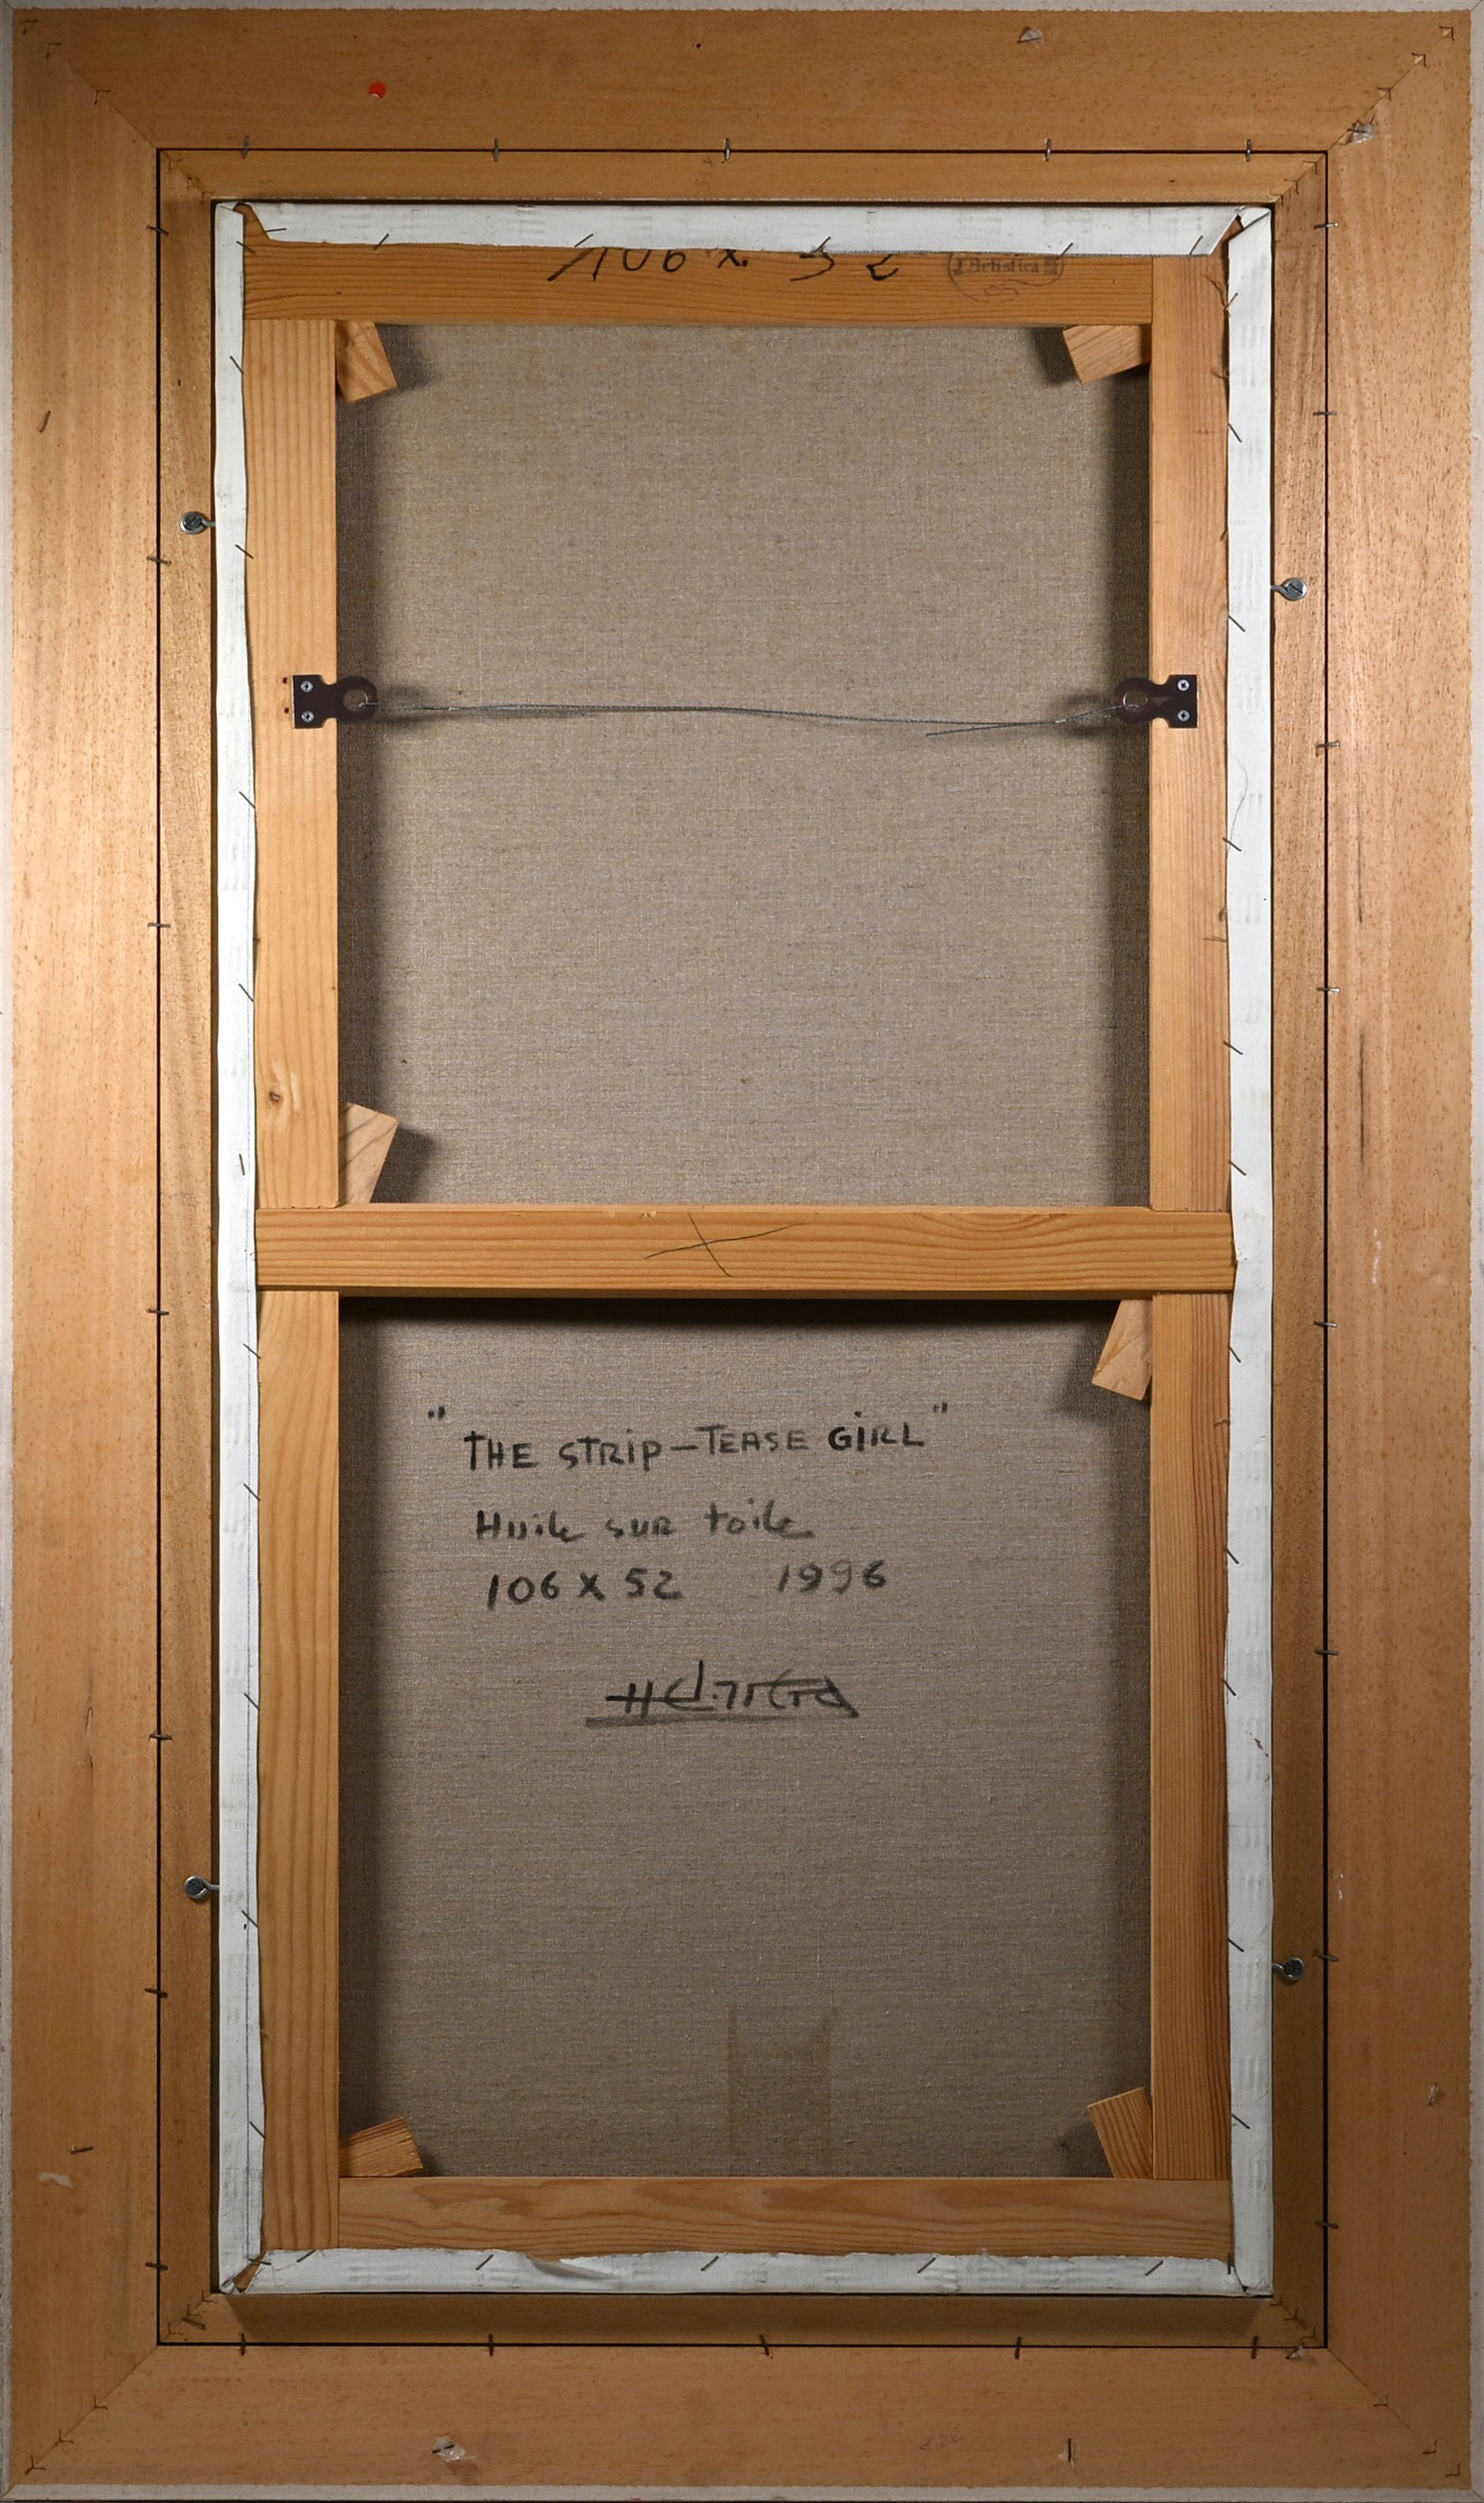 106 x 52
L'Artistica
"THE STRIP-TEASE GiRL"
Huile sur toile
106 x 52 1996